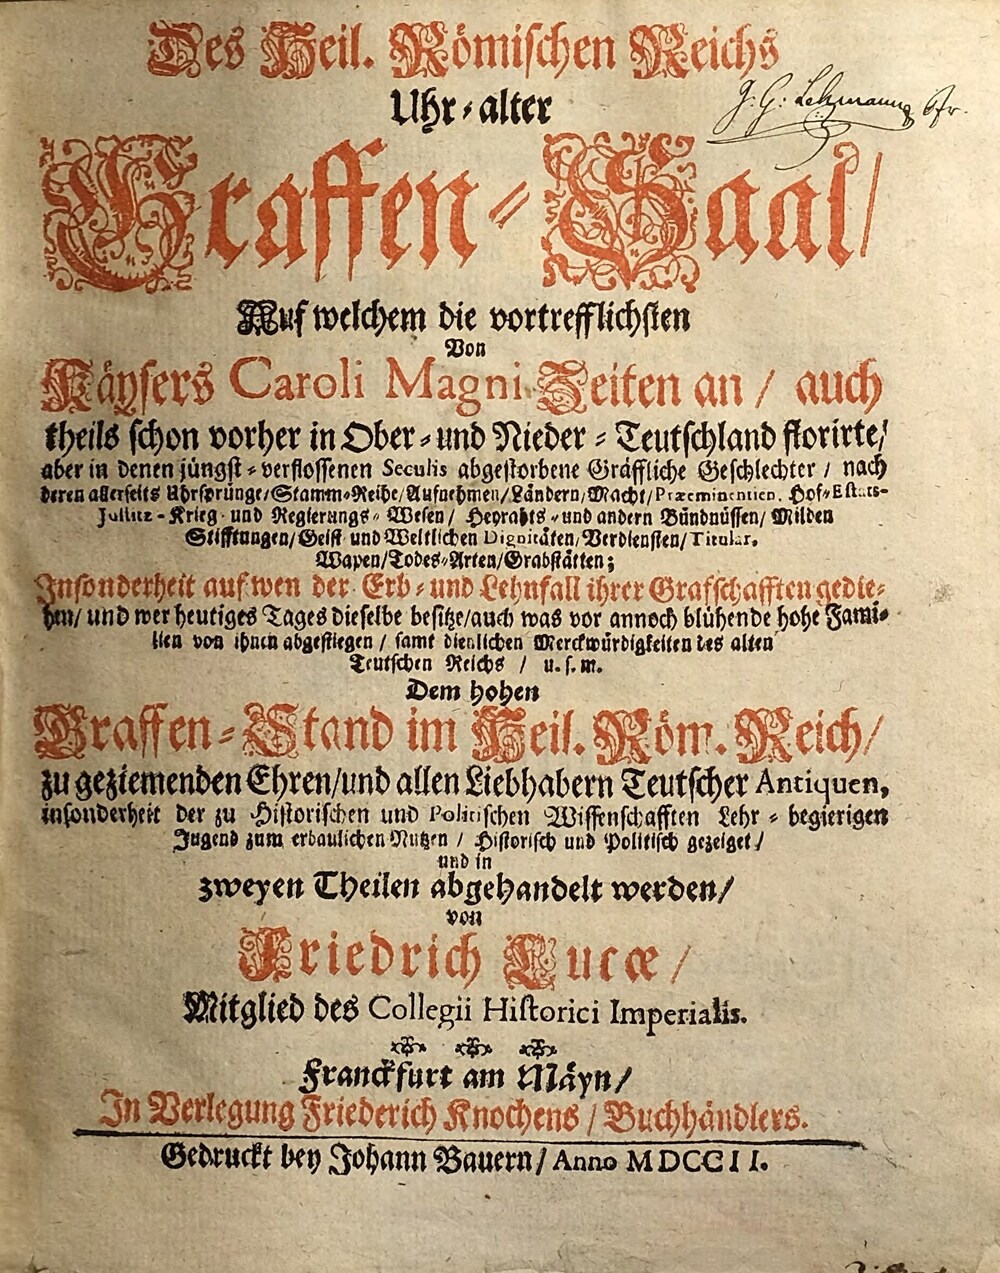 Des Heil. Römischen Reichs
Uhr-alter
Graffen-Saal/
Auf welchem die vortrefflichsten
Von
Käysers Caroli Magni Zeiten an / auch
theils schon vorher in Ober- und Nieder-Teutschland florirte/
aber in denen jüngst-verflossenen Seculis abgestorbene Gräffliche Geschlechter / nach
deren allerseits Uhrsprünge/Stamm-Reihe/Aufnehmen/Ländern/Macht/Præeminentien, Hof-Estats-
Justitz-Krieg- und Regierungs-Wesen/ Heyrahts- und andern Bündnüssen/ Milden
Stifftungen/Geist- und Weltlichen Dignitäten/Verdiensten/Titular,
Wapen/Todes-Arten/Grabstätten;
Insonderheit auf wen der Erb- und Lehnfall ihrer Grafschafften gedie-
hen/ und wer heutiges Tages dieselbe besitze/auch was vor annoch blühende hohe Fami-
lien von ihnen abgestiegen / samt dienlichen Merckwürdigkeiten des alten
Teutschen Reichs / u. s. m.
Dem hohen
Graffen-Stand im Heil. Röm. Reich/
zu geziemenden Ehren/und allen Liebhabern Teutscher Antiquen,
insonderheit der zu Historischen und Politischen Wissenschafften Lehr-begierigen
Jugend zum erbaulichen Nutzen / Historisch und Politisch gezeiget/
und in
zweyen Theilen abgehandelt werden/
von
Friedrich Lucæ/
Mitglied des Collegii Historici Imperialis.
Franckfurt am Mäyn/
In Verlegung Friederich Knochens / Buchhändlers.
Gedruckt bey Johann Bauern/ Anno MDCCII.
J. G. Lehmann